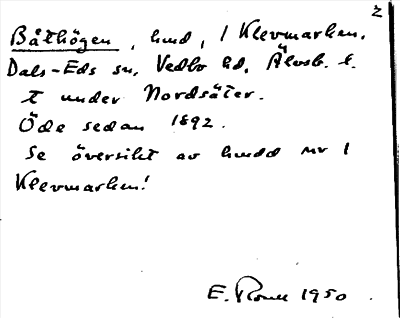 2
Båthögen, hmd, 1 Klevmarken,
Dals-Eds sn, Vedbo hd, Älvsb. l.
t under Nordsäter.
Öde sedan 1892.
Se översikt av hmdd nr 1
Klevmarken!
E. 1950